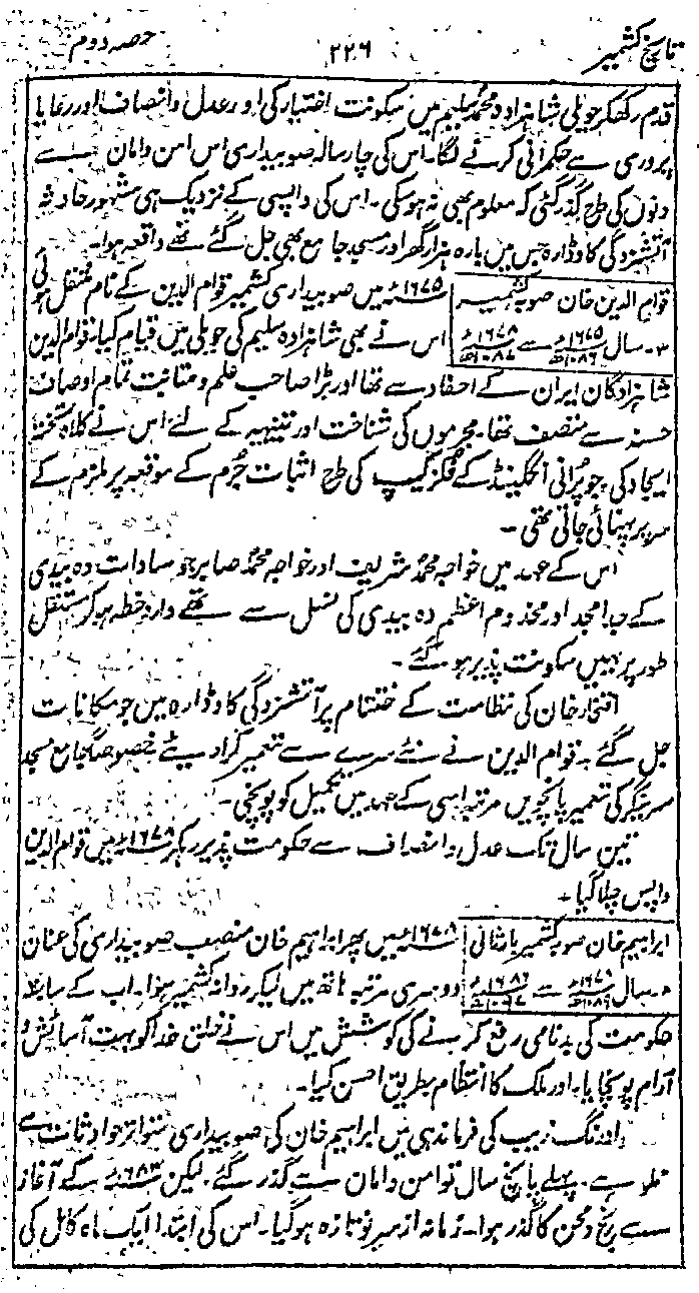 تاریخ کشمیر ۲۲۶ حصہ دوم
قدم رکھکر حویلی شاہزادہ محمد سلیم میں سکونت اختیار کی اور عدل وانصاف اور رعایا
پروری سے حکمرانی کرنے لگا۔ اس کی چار سالہ صوبیداری اس امن وامان سے
دنوں کی طرح گذر گئی کہ معلوم بھی نہ ہوسکی۔ اس کی واپسی کے نزدیک ہی مشہور حادثہ
آتشزدگی کاوڈارہ جس میں بارہ ہزار گھر اور مسجد جامع بھی جل گئے تھے واقعہ ہوا۔
قوام الدین خان صوبہ کشمیر
۳۔ سال ۱۶۷۵ء ۱۰۸۶ھ سے ۱۶۷۸ء
۱۶۷۵ء میں صوبیداری کشمیر قوام الدین کے نام منتقل ہوئی
اس نے بھی شاہزادہ سلیم کی حویلی میں قیام کیا۔ قوام الدین
شاہزادگان ایران کے احفاد سے تھا اور بڑا صاحب علم ومتانت تمام اوصاف
حسنہ سے متصف تھا۔ مجرموں کی شناخت اور تنبیہہ کے لئے اس نے کلاہ تختہ
ایجاد کی جو پرانی انگلینڈ کے فگز کیپ کی طرح اثبات جُرم کے موقعہ پر ملزم کے
سر پر پہنائی جاتی تھی۔
اس کے عہد میں خواجہ محمد شریف اور خواجہ محمد صابر جو سادات دہ بیدی
کے جدا مجد اور مخدوم اعظم دہ بیدی کی نسل سے تھے وارد خطہ ہوکر مستقل
طور پر یہیں سکونت پذیر ہوگئے۔
افتخار خان کی نظامت کے اختتام پر آتشزدگی کاوڈارہ میں جو مکانات
جل گئے تھے قوام الدین نے نئے سرے سے تعمیر کرا دیئے خصوصاً جامع مسجد
سرینگر کی تعمیر پانچویں مرتبہ اسی کے عہد میں تکمیل کو پہونچی۔
تین سال تک عدل وانصاف سے حکومت پذیر رہکر ۱۶۷۸ء میں قوام الدین
واپس چلا گیا۔
ابراہیم خان صوبہ کشمیر بار ثانی
۸۔ سال ۱۶۷۸ء ۱۰۸۹ھ سے ۱۶۸۶ء ۱۰۹۷ھ
۱۶۷۸ء میں پھر ابراہیم خان منصب صوبیداری کی عنان
دوسری مرتبہ ہاتھ میں لیکر روانہ کشمیر ہوا۔ اب کے سابقہ
حکومت کی بدنامی رفع کرنے کی کوشش میں اس نے خلق خدا کو بہت آسائش و
آرام پہونچایا۔ اور ملک کا انتظام بطریق احسن کیا۔
اورنگ زیب کی فرماندہی میں ابراہیم خان کی صوبیداری متواتر حوادثات سے
مملو ہے۔ پہلے پانچ سال تو امن وامان سے گذر گئے۔ لیکن ۱۶۸۳ء کے آغاز
سے رنج ومحن کا گذر ہوا۔ زمانہ از سر نو تازہ ہوگیا۔ اس کی ابتدا ایک ماہ کامل کی